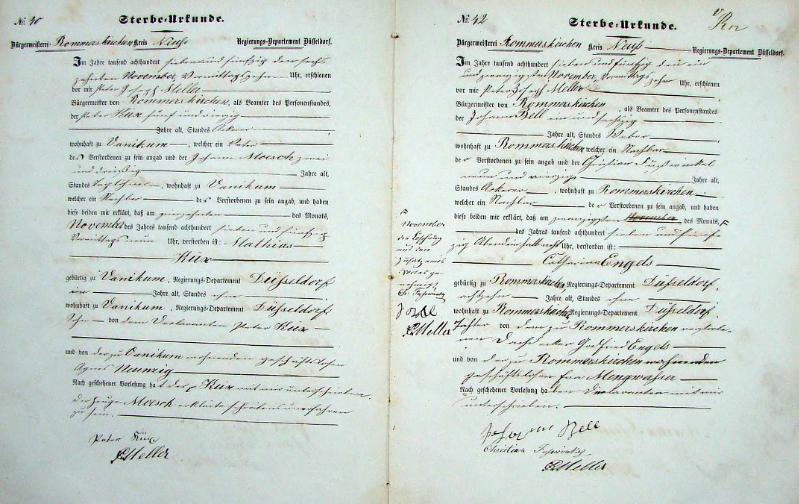 № 40
Sterbe-Urkunde.
Bürgermeisterei Rommerskirchen Kreis Neuß Regierungs-Departement Düsseldorf.
Im Jahre tausend achthundert sieben und fünfzig den sechs
zehnten November, Vormittags zehn Uhr, erschienen
vor mir Peter Joseph Meller
Bürgermeister von Rommerskirchen, als Beamter des Personenstandes,
der Peter Kux fünf und vierzig
Jahre alt, Standes Ackerer
wohnhaft zu Vanikum, welcher ein Vater
des Verstorbenen zu sein angab und der Johann Moesch zwei
und dreißig Jahre alt,
Standes Taglöhner, wohnhaft zu Vanikum
welcher ein Nachbar des Verstorbenen zu sein angab, und haben
diese beiden mir erklärt, daß am des Monats,
November des Jahres tausend achthundert sieben und fünfzig
Vormittags neun Uhr, verstorben ist: Mathias
Kux
gebürtig zu Vanikum, Regierungs-Departement Düsseldorf
ein Jahre alt, Standes ohne
wohnhaft zu Vanikum, Regierungs-Departement Düsseldorf
Sohn von dem Declaranten Peter Kux
und von der zu Vanikum wohnenden geschäftslosen
Agnes Neunzig
Nach geschehener Vorlesung hat der Kux mit mir unterschrieben,
der Zeuge Moesch erklärte schreibensunerfahren
zu sein.
Peter Kux
PMeller
№ 42
Sterbe-Urkunde.
Bürgermeisterei Rommerskirchen Kreis Neuß Regierungs-Departement Düsseldorf.
Im Jahre tausend achthundert sieben und fünfzig den ein
und zwanzigsten November, Vormittags Uhr, erschienen
vor mir Peter Joseph Meller
Bürgermeister von Rommerskirchen, als Beamter des Personenstandes
der Johann Bell ein und sechzig
Jahre alt, Standes Weber
wohnhaft zu Rommerskirchen welcher ein Nachbar
der Verstorbenen zu sein angab und der Christian
neun und vierzig Jahre alt,
Standes Ackerer, wohnhaft zu Rommerskirchen
welcher ein Nachbar der Verstorbenen zu sein angab, und haben
diese beiden mir erklärt, daß am zwanzigsten November des Monats,
des Jahres tausend achthundert sieben und fünf
zig Abends halb Uhr, verstorben ist:
Catharina Engels
gebürtig zu Rommerskirchen, Regierungs-Departement Düsseldorf,
achtzehn Jahre alt, Standes ohne
wohnhaft zu Rommerskirchen Regierungs-Departement Düsseldorf
Tochter von dem zu Rommerskirchen
Engels
und von der zu Rommerskirchen wohnenden
geschäftslosen Mengwasser
Nach geschehener Vorlesung haben Declaranten mit mir
unterschrieben.
Bell
Christian
PMeller
November
PMeller